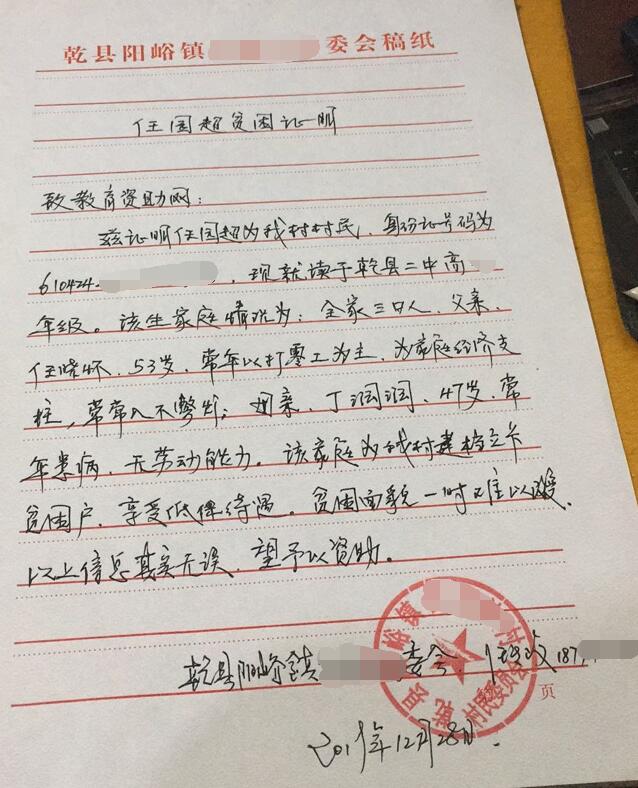 乾县阳峪镇 委会稿纸
任国超贫困证明
致教育资助网:
兹证明任国超为我村村民,身份证号码为
610424 ,现就读于乾县二中高
年级。该生家庭情况为:全家三口人,父亲,
任晓怀,53岁,常年以打零工为主,为家庭经济支
柱,常常入不敷出;母亲,丁润润,47岁,常
年患病,无劳动能力。该家庭为我村建档立卡
贫困户,享受低保待遇,贫困面貌一时难以改变。
以上信息真实无误,望予以资助。
峪镇 村 村民委员会
乾县阳峪镇 委会 187
页
2019年12月28日.